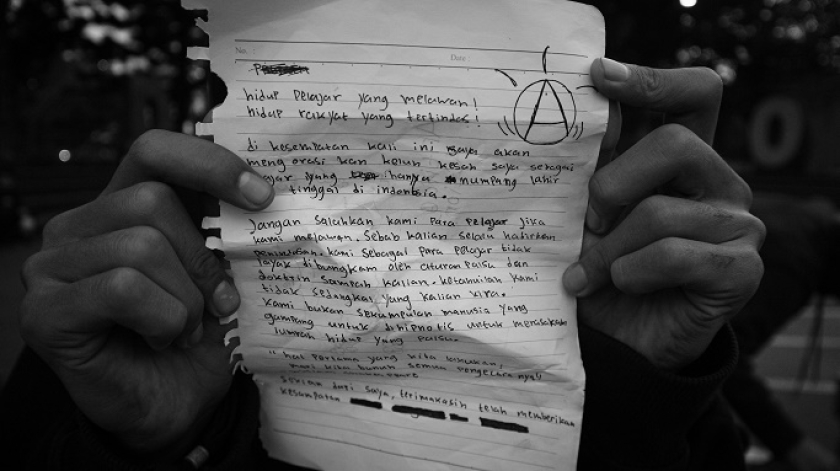 No. :
Date :
hidup pelajar yang melawan!
hidup rakyat yang tertindas!
A
di kesempatan kali ini saya akan
mengorasi kan keluh kesah saya sebagai
yang hanya numpang lahir
tinggal di indonesia.
Jangan salahkan kami para pelajar jika
kami melawan. Sebab kalian selalu hadirkan
penindasan. kami sebagai para pelajar tidak
layak dibungkam oleh aturan palsu dan
doktrin sampah kalian. ketahuilah kami
tidak sedangkal yang kalian kira.
kami bukan sekumpulan manusia yang
gampang untuk dihipnotis untuk merasakan
lumrah hidup yang palsu.
"hal pertama yang kita lakukan,
mari kita bunuh semua pengecara nya"
Sekian dari saya, terimakasih telah memberikan
kesempatan